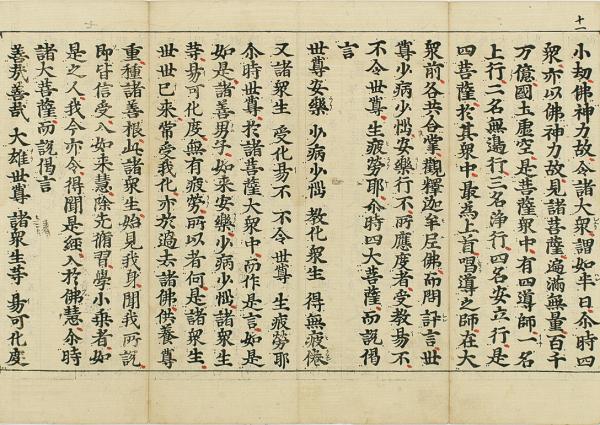 十一
小劫佛神力故令諸大衆謂如半日尒時四
衆亦以佛神力故見諸菩薩遍滿無量百千
万億國土虛空是菩薩衆中有四導師一名
上行二名無邊行三名淨行四名安立行是
四菩薩於其衆中最爲上首唱導之師在大
衆前各共合掌觀釋迦牟尼佛而問訃言世
尊少病少惱安樂行不所應度者受教易不
不令世尊生疲勞耶尒時四大菩薩而說偈
言
世尊安樂 少病少惱 教化衆生 得無疲倦
又諸衆生 受化易不 不令世尊 生疲勞耶
尒時世尊於諸菩薩大衆中而作是言如是
如是諸善男子如來安樂少病少惱諸衆生
等易可化度無有疲勞所以者何是諸衆生
世世已來常受我化亦於過去諸佛供養尊
重種諸善根此諸衆生始見我身聞我所說
即皆信受入如來慧除先脩習學小乘者如
是之人我今亦令得聞是經入於佛慧尒時
諸大菩薩而說偈言
善哉善哉 大雄世尊 諸衆生等 易可化度